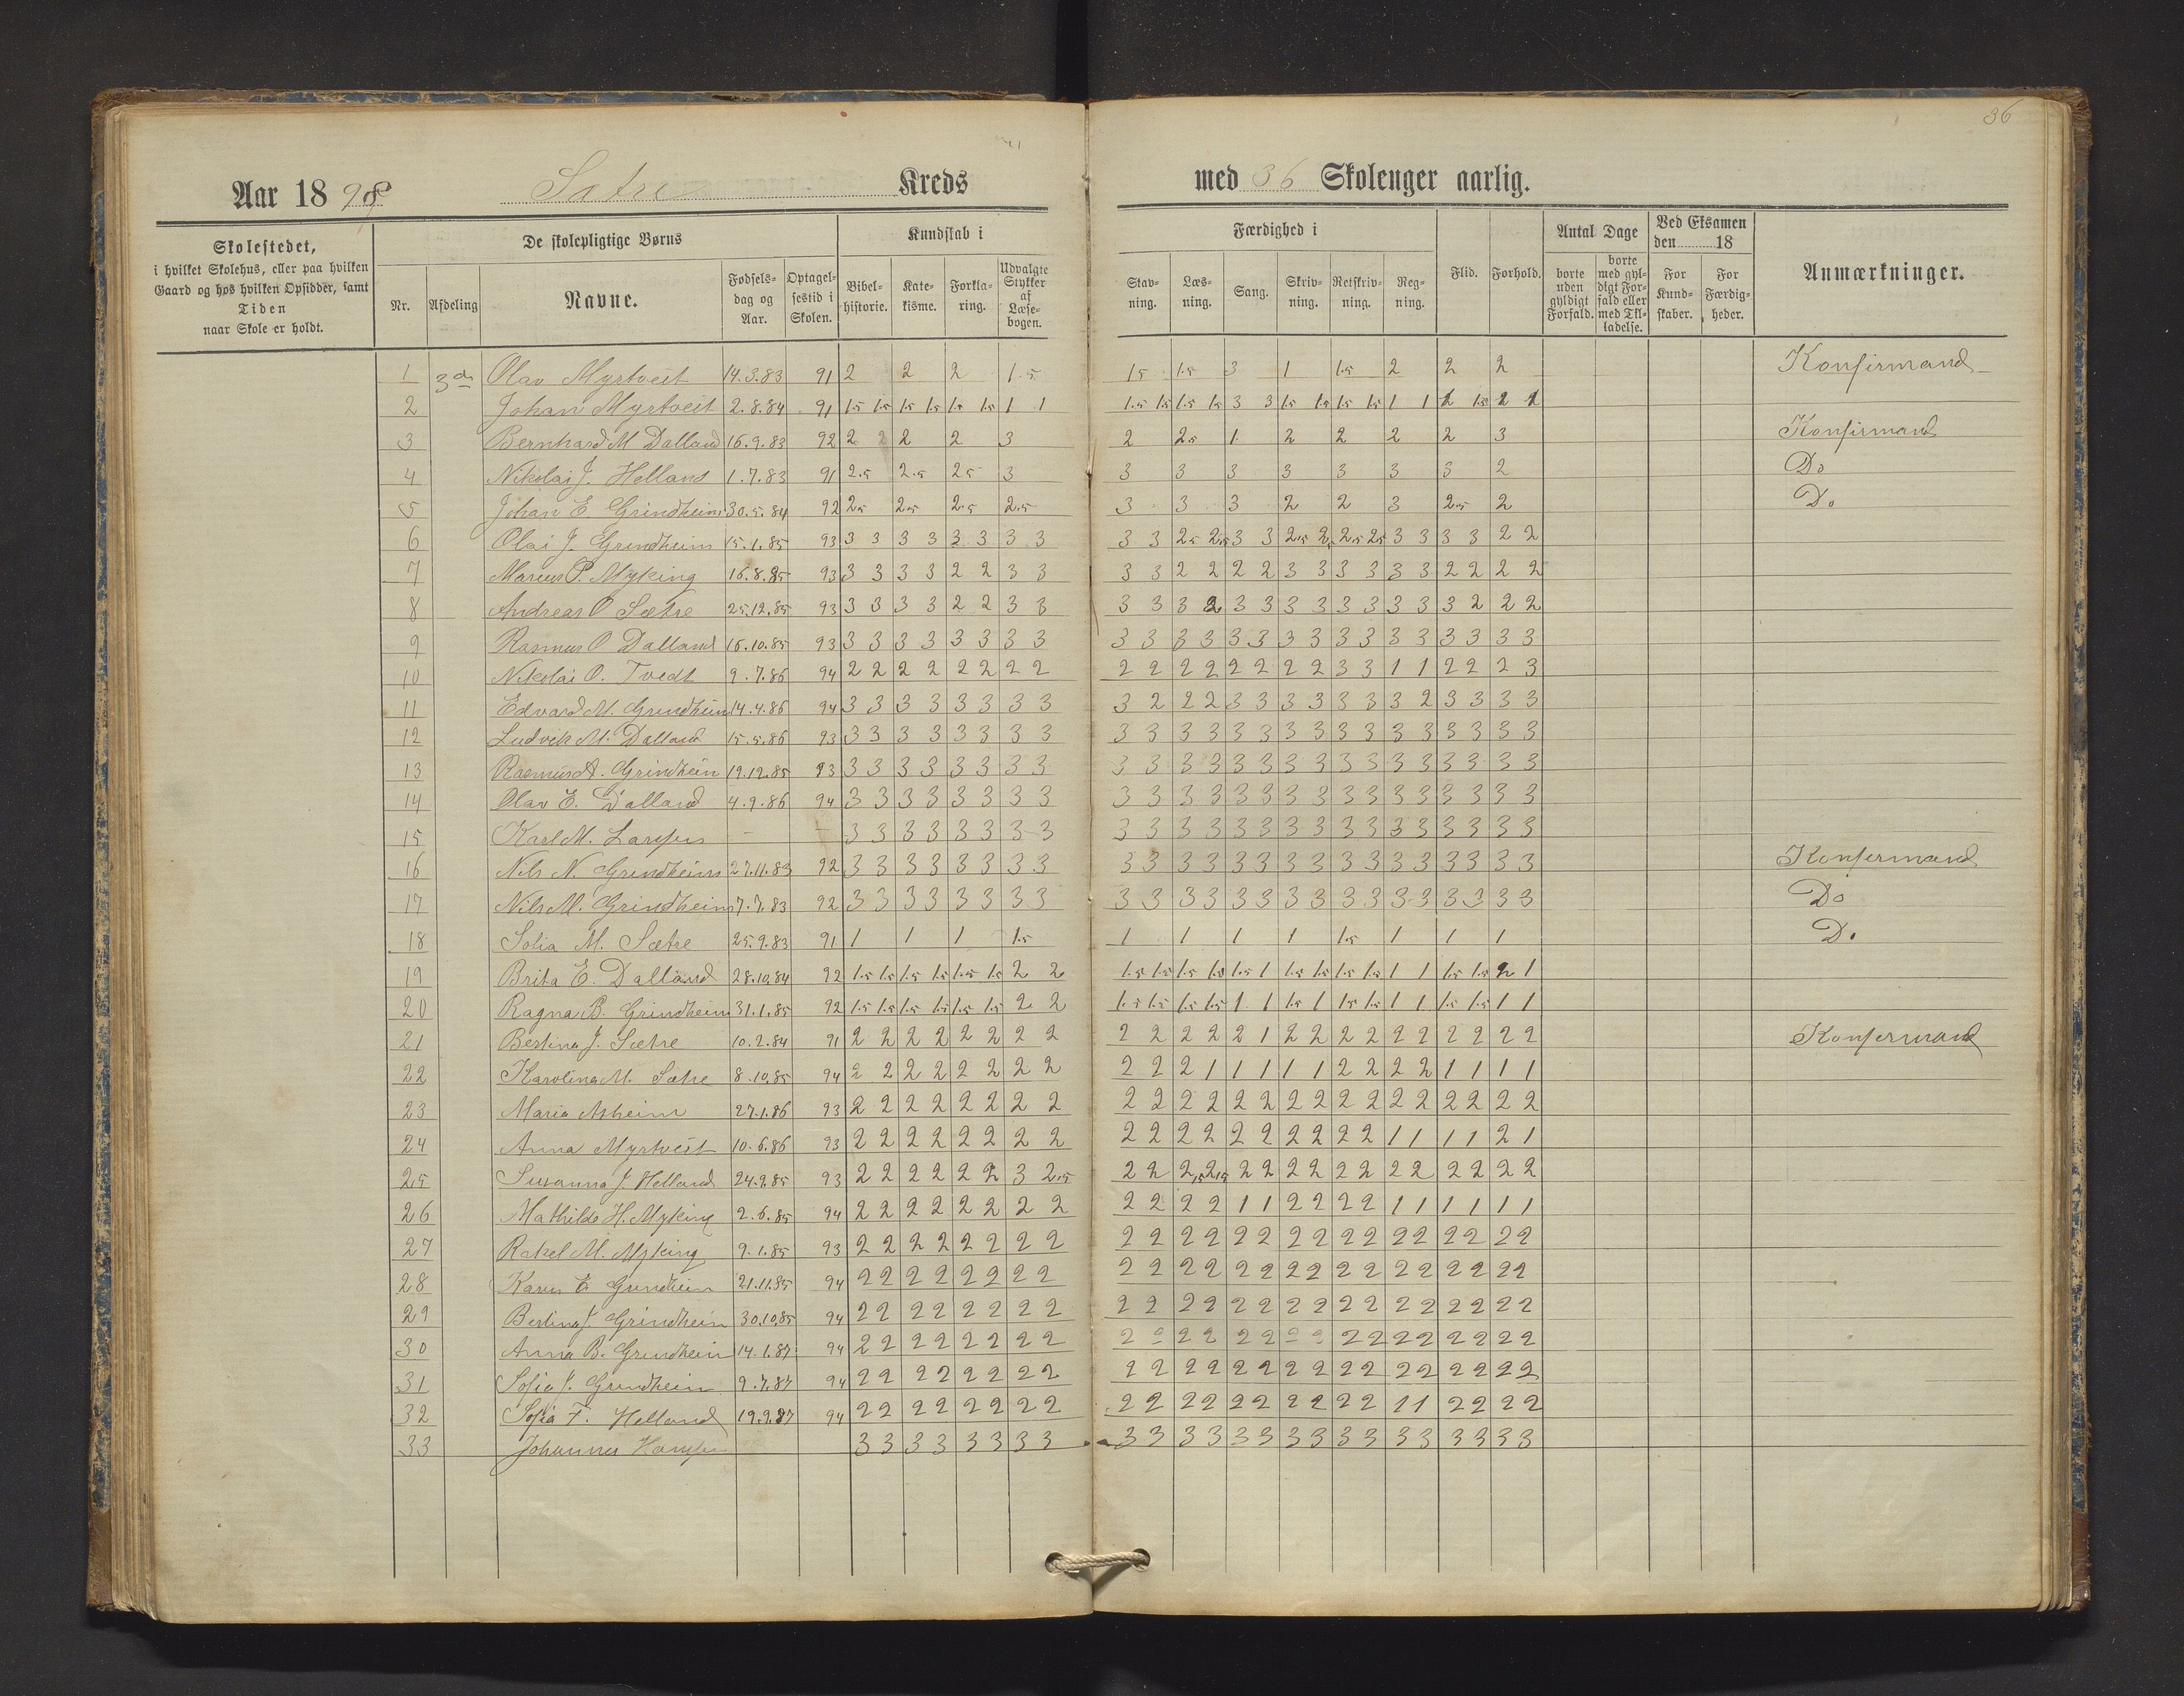 36
Aar 1898 Sætre Kreds med 36 Skoleuger aarlig.
Skolestedet, i hvilket Skolehus, eller paa hvilken Gaard og hos hvilken Opsidder, samt Tiden naar Skole er holdt.
De skolepligtige Børns
Nr. Afdeling Navne. Fødselsdag og Aar. Optagelsestid i Skolen.
Kundskab i
Bibelhistorie. Katekisme. Forklaring. Udvalgte Stykker af Læsebogen.
Færdighed i
Stavning. Læsning. Sang. Skrivning. Retskrivning. Regning. Flid. Forhold.
Antal Dage
borte uden gyldigt Forfald. borte med gyldigt Forfald eller med Tilladelse.
Ved Eksamen den 18
For Kundskaber. For Færdigheder.
Anmærkninger.
1 3de Olav Myrtveit 14.3.83 91 2 2 2 1.5 1.5 1.5 3 1 1.5 2 2 2 Konfirmand
2 Johan Myrtveit 2.8.84 91 1.5 1.5 1.5 1.5 1.5 1.5 1 1 1.5 1.5 1.5 1.5 3 3 1.5 1.5 1.5 1.5 1 1 1 1.5 2 1
3 Bernhard M Dalland 16.9.83 92 2 2 2 2 3 2 2.5 1 2 2 2 2 3 Konfirmand
4 Nikolai J. Helland 1.7.83 91 2.5 2.5 2.5 3 3 3 3 3 3 3 3 2 Do
5 Johan E. Grindheim 30.5.84 92 2.5 2.5 2.5 2.5 3 3 3 2 2 3 2.5 2 Do
6 Olai J. Grindheim 15.1.85 93 3 3 3 3 3 3 3 3 3 3 2.5 2.5 3 3 2.5 2.5 2.5 2.5 3 3 3 3 2 2
7 Marcus P. Myking 16.8.85 93 3 3 3 3 2 2 3 3 3 3 2 2 2 2 3 3 3 3 3 3 2 2 2 2
8 Andreas O Sætre 25.12.85 93 3 3 3 3 2 2 3 3 3 3 3 2 3 3 3 3 3 3 3 3 3 2 2 2
9 Rasmus O Dalland 16.10.85 93 3 3 3 3 3 3 3 3 3 3 3 3 3 3 3 3 3 3 3 3 3 3 3 3
10 Nikolai O. Tvedt 9.7.86 94 2 2 2 2 2 2 2 2 2 2 2 2 2 2 2 2 3 3 1 1 2 2 2 3
11 Edvard M. Grindheim 14.4.86 94 3 3 3 3 3 3 3 3 3 2 2 2 3 3 3 3 3 3 3 2 3 3 3 3
12 Ludvik M. Dalland 15.5.86 93 3 3 3 3 3 3 3 3 3 3 3 3 3 3 3 3 3 3 3 3 3 3 3 3
13 Rasmus A. Grindheim 19.12.85 93 3 3 3 3 3 3 3 3 3 3 3 3 3 3 3 3 3 3 3 3 3 3 3 3
14 Olav E. Dalland 4.9.86 94 3 3 3 3 3 3 3 3 3 3 3 3 3 3 3 3 3 3 3 3 3 3 3 3
15 Karl M. Larsen — — 3 3 3 3 3 3 3 3 3 3 3 3 3 3 3 3 3 3 3 3 3 3 3 3
16 Nils N. Grindheim 27.11.83 92 3 3 3 3 3 3 3 3 3 3 3 3 3 3 3 3 3 3 3 3 3 3 3 3 Konfermand
17 Nils M. Grindheim 7.7.83 92 3 3 3 3 3 3 3 3 3 3 3 3 3 3 3 3 3 3 3 3 3 3 3 3 Do
18 Sofia M. Sætre 25.9.83 91 1 1 1 1.5 1 1 1 1 1.5 1 1 1 Do
19 Brita E. Dalland 28.10.84 92 1.5 1.5 1.5 1.5 1.5 1.5 2 2 1.5 1.5 1.5 1.5 1.5 1 1.5 1.5 1.5 1.5 1 1 1.5 1.5 2 1
20 Ragna B. Grindheim 31.1.85 92 1.5 1.5 1.5 1.5 1.5 1.5 2 2 1.5 1.5 1.5 1.5 1 1 1.5 1 1.5 1.5 1 1 1.5 1.5 1 1
21 Bertina J. Sætre 10.2.84 91 2 2 2 2 2 2 2 2 2 2 2 2 2 1 2 2 2 2 2 2 2 2 2 2 Konfermand
22 Karolina M. Sætre 8.10.85 94 2 2 2 2 2 2 2 2 2 2 2 1 1 1 1 1 2 2 2 2 1 1 1 1
23 Maria Asheim 27.1.86 93 2 2 2 2 2 2 2 2 2 2 2 2 2 2 2 2 2 2 2 2 2 2 2 2
24 Anna Myrtveit 10.6.86 93 2 2 2 2 2 2 2 2 2 2 2 2 2 2 2 2 2 2 1 1 1 1 2 1
25 Susanna J. Helland 24.9.85 93 2 2 2 2 2 2 3 2.5 2 2 2.5 2.5 2 2 2 2 2 2 2 2 2 2 2 2
26 Mathilde H. Myking 2.6.85 94 2 2 2 2 2 2 2 2 2 2 2 2 1 1 2 2 2 2 1 1 1 1 1 1
27 Rakel M. Myking 9.1.85 93 2 2 2 2 2 2 2 2 2 2 2 2 2 2 2 2 2 2 2 2 2 2 2 2
28 Karen E Grindheim 21.11.85 94 2 2 2 2 2 2 2 2 2 2 2 2 2 2 2 2 2 2 2 2 2 2 2 2
29 Bertina J. Grindheim 30.10.85 94 2 2 2 2 2 2 2 2 2 2 2 2 2 2 2 2 2 2 2 2 2 2 2 2
30 Anna B. Grindheim 14.1.87 94 2 2 2 2 2 2 2 2 2 2 2 2 2 2 2 2 2 2 2 2 2 2 2 2
31 Sofia J. Grindheim 9.7.87 94 2 2 2 2 2 2 2 2 2 2 2 2 2 2 2 2 2 2 2 2 2 2 2 2
32 Sofia F. Helland 19.9.87 94 2 2 2 2 2 2 2 2 2 2 2 2 2 2 2 2 2 2 1 1 2 2 2 2
33 Johannes 3 3 3 3 3 3 3 3 3 3 3 3 3 3 3 3 3 3 3 3 3 3 3 3